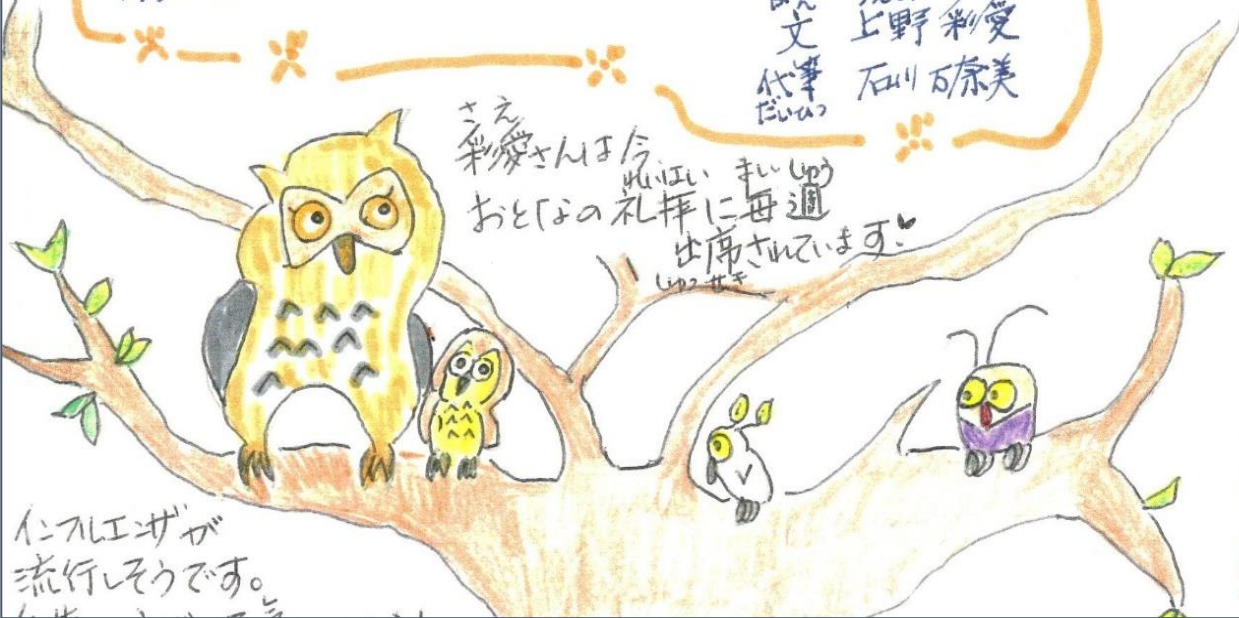 文 上野 彩愛
代筆 石川 万奈美
だいひつ
さえ
彩愛さんは今、
れいはい まいしゅう
おとなの礼拝に毎週
出席されています。
しゅっせき
インフルエンザが
流行しそうです。